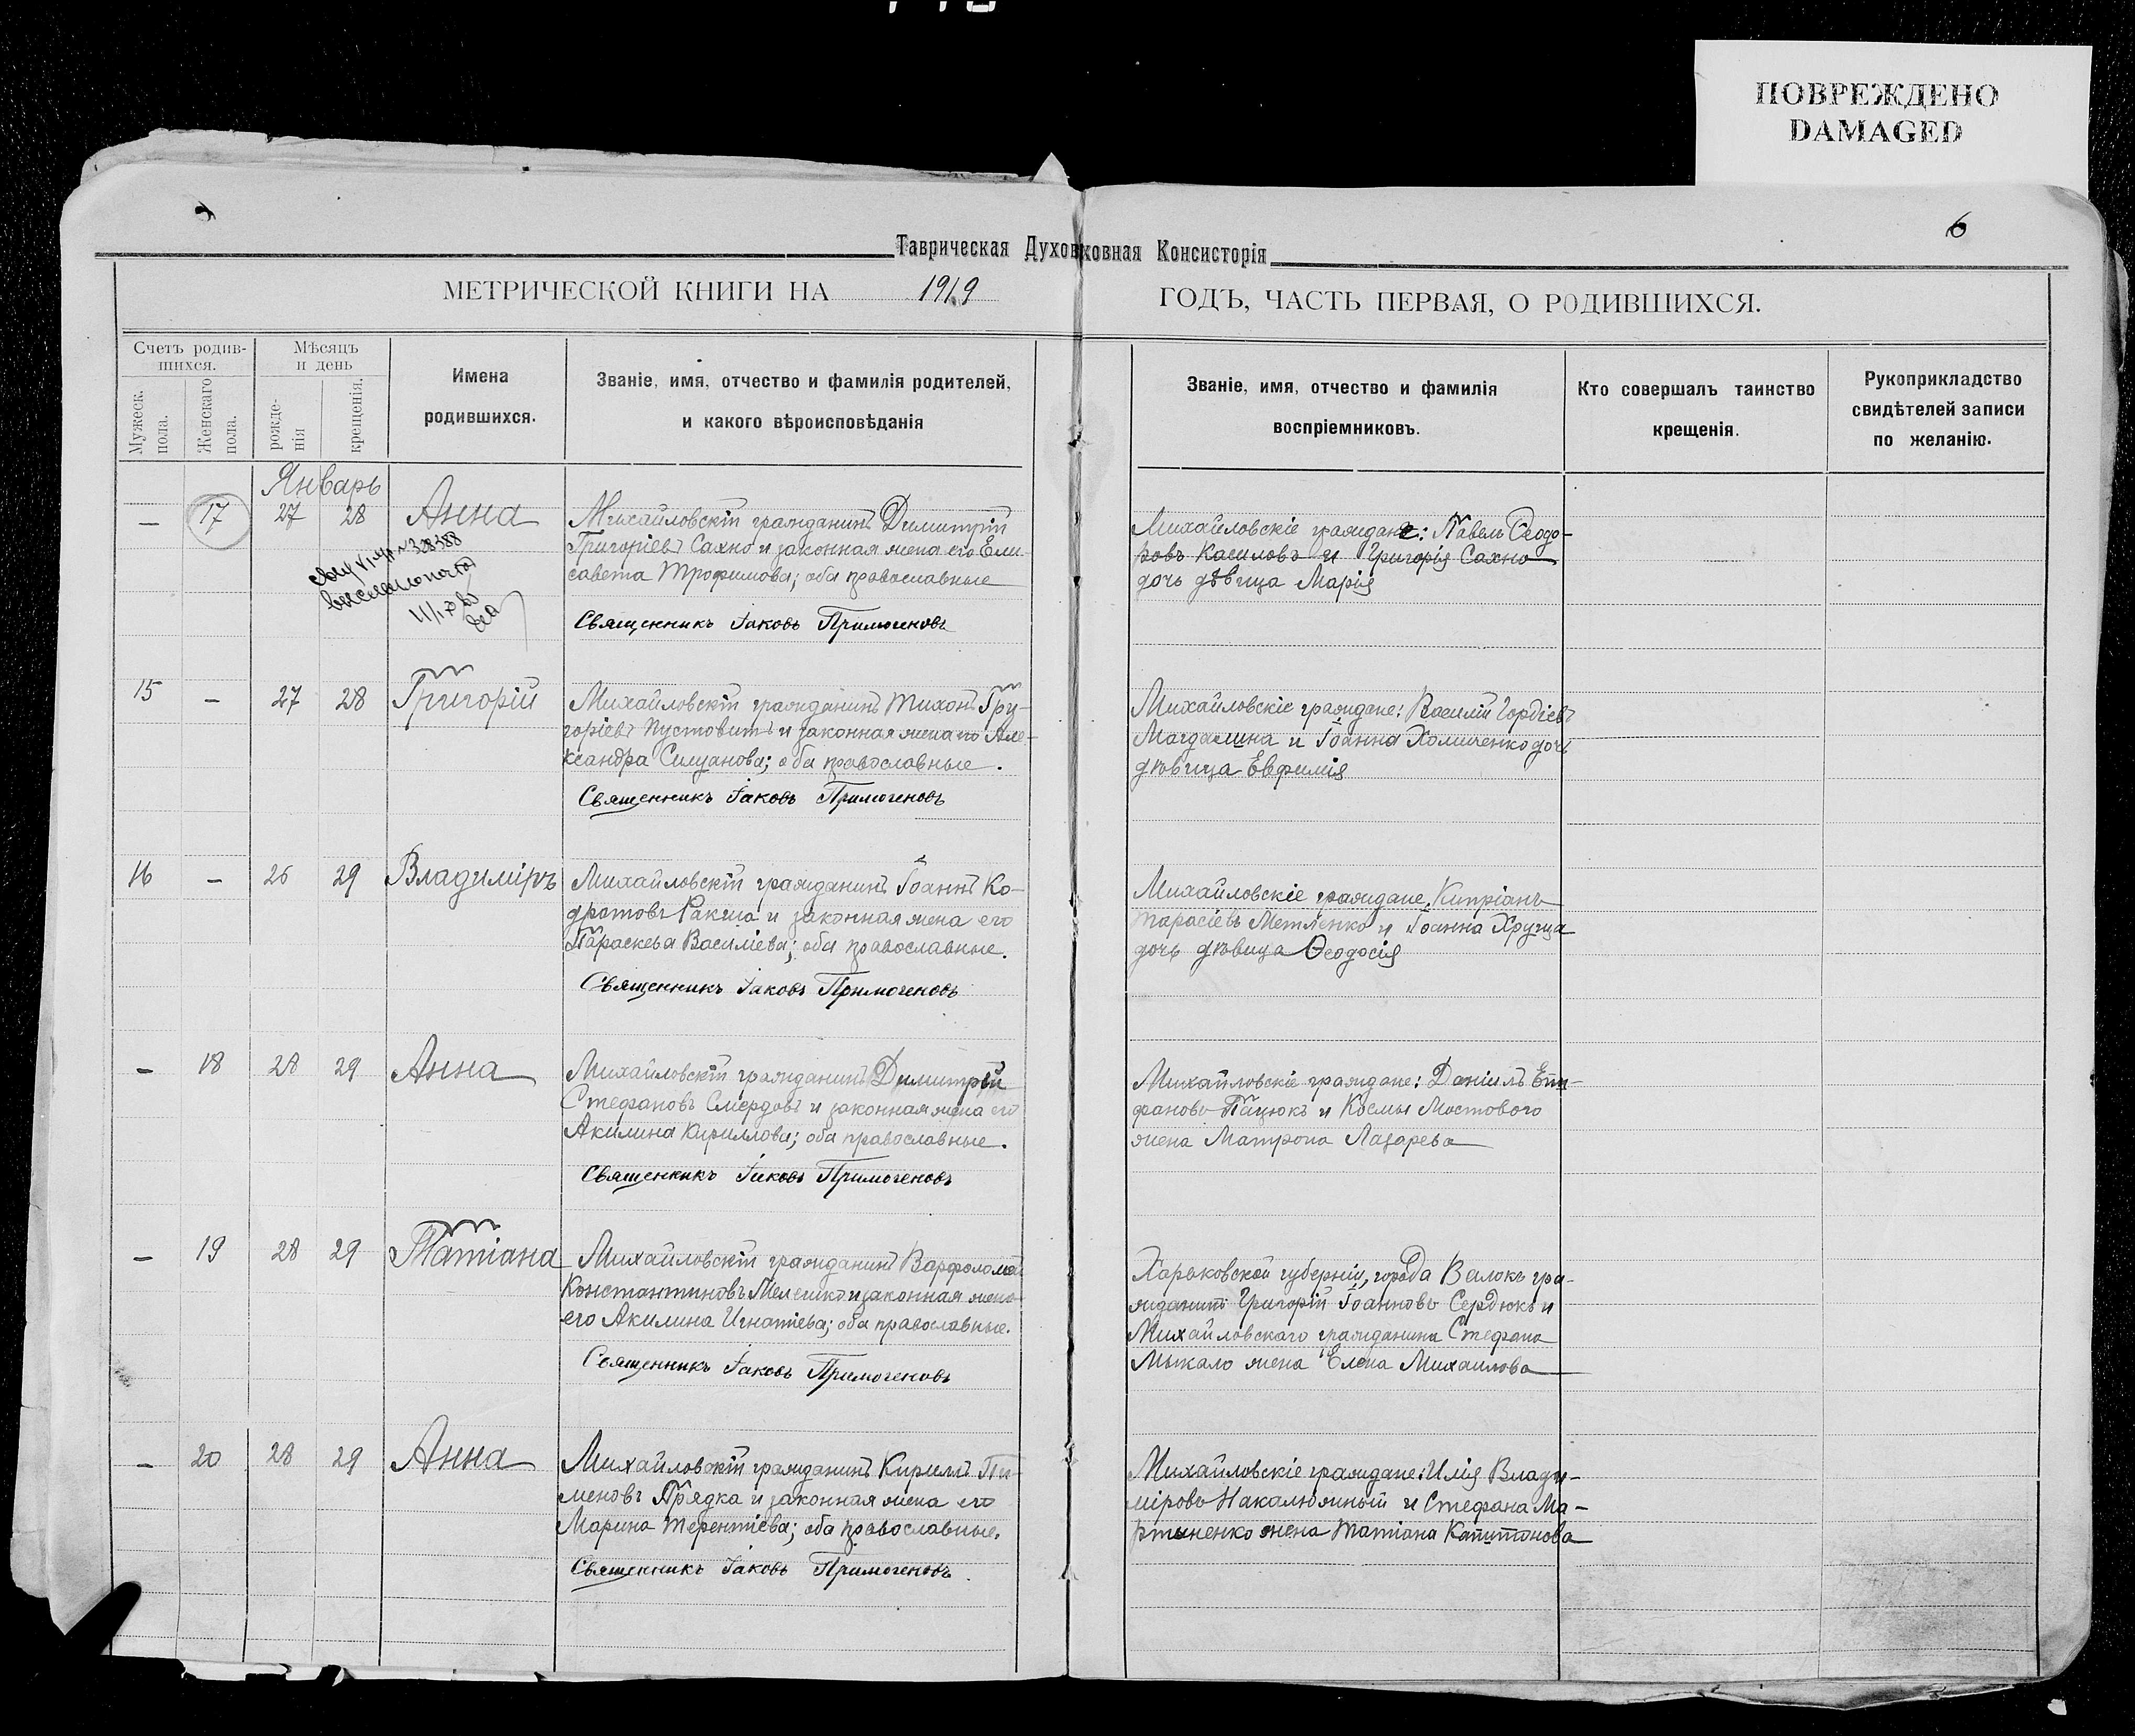 ПОВРЕЖДЕНО
DAMAGED
6
Таврическая Духов ховная Консисторія
МЕТРИЧЕСКОЙ КНИГИ НА 1919 ГОДЪ, ЧАСТЬ ПЕРВАЯ, О РОДИВШИХСЯ.
Счетъ родив-
шихся.
Мужеск.
пола.
Женскаго
пола.
Мѣсяцъ
и день
рожде-
нія
крещенія.
Имена
родившихся.
Званіе, имя, отчество и фамилія родителей,
и какого вѣроисповѣданія
Званіе, имя, отчество и фамилія
воспріемниковъ.
Кто совершалъ таинство
крещенія.
Рукоприкладство
свидѣтелей записи
по желанію.
Январь
— 17 27 28 Анна
Михайловскій гражданинъ Димитрій
Григоріевъ Сахно и законная жена его Ели-
савета Трофимова; оба православные
Священникъ Іаковъ Примогеновъ
Михайловскіе граждане: Павелъ Ѳеодо-
ровъ Касиловъ и Григорія Сахно
дочь дѣвица Марія
№ 328388
15 — 27 28 Григорій
Михайловскій гражданинъ Тихонъ Гри-
горіевъ Пустовитъ и законная жена его Але-
ксандра Силуанова; оба православные.
Священникъ Іаковъ Примогеновъ
Михайловскіе граждане: Василій Гордіевъ
Магдалина и Іоанна Хомиченко дочь
дѣвица Евфимія
16 — 26 29 Владиміръ
Михайловскій гражданинъ Іоаннъ Ко-
дратовъ Ракша и законная жена его
Параскева Василіева; оба православные.
Священникъ Іаковъ Примогеновъ
Михайловскіе граждане, Кипріанъ
Тарасіевъ Метленко и Іоанна Хруща
дочь дѣвица Ѳеодосія
— 18 28 29 Анна
Михайловскій гражданинъ Димитрій
Стефановъ Смердовъ и законная жена его
Акилина Кириллова; оба православные.
Священникъ Іаковъ Примогеновъ
Михайловскіе граждане: Даніилъ Епи-
фановъ Пацюкъ и Космы Мостового
жена Матрона Лазарева
— 19 28 29 Татіана
Михайловскій гражданинъ Варфоломей
Константиновъ Мелешко и законная жена
его Акилина Игнатіева; оба православные.
Священникъ Іаковъ Примогеновъ
Харьковской губерніи, города Валокъ гра-
жданинъ Григорій Іоанновъ Сердюкъ и
Михайловскаго гражданина Стефана
Мыкало жена Елена Михаилова
— 20 28 29 Анна
Михайловскій гражданинъ Кириллъ Пи-
меновъ Прядка и законная жена его
Марина Терентіева; оба православные.
Священникъ Іаковъ Примогеновъ.
Михайловскіе граждане: Илія Влади-
міровъ Накалюжный и Стефана Ма-
ртыненко жена Татіана Капитонова